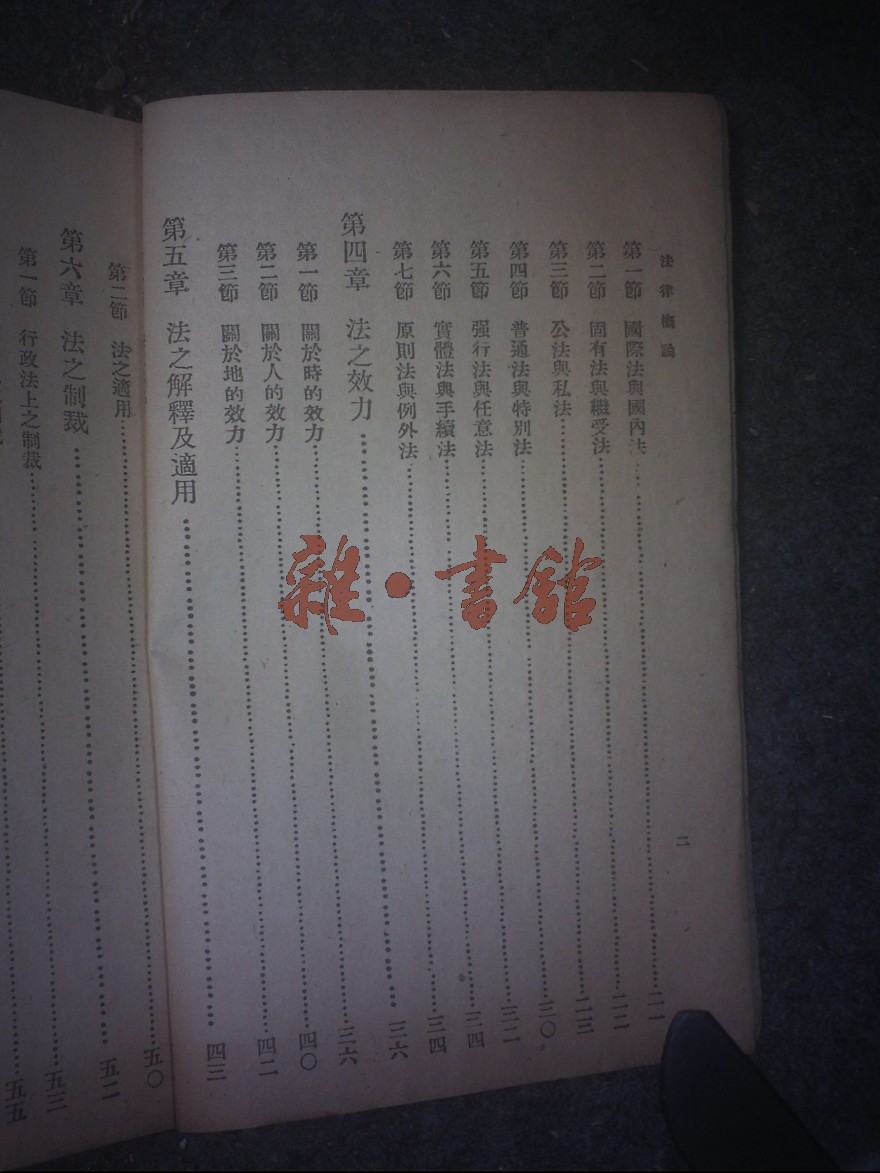 法律概論
二
第一節 國際法與國內法……二一
第二節 固有法與繼受法……二二
第三節 公法與私法……二三
第四節 普通法與特別法……三〇
第五節 强行法與任意法……三二
第六節 實體法與手續法……三四
第七節 原則法與例外法……三四
第四章 法之效力……三六
第一節 關於時的效力……三六
第二節 關於人的效力……四〇
第三節 關於地的效力……四二
第五章 法之解釋及適用……四三
第二節 法之適用……五〇
第六章 法之制裁……五二
第一節 行政法上之制裁……五三
五五
雜·書館